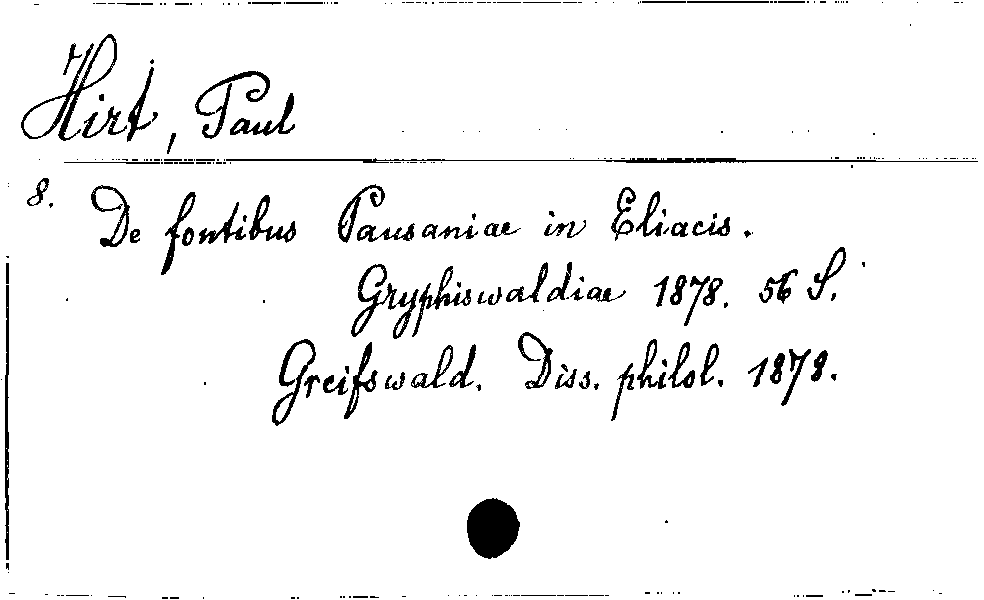 Hirt, Paul
8. De fontibus Pausaniae in Eliacis.
Gryphiswaldiae 1878. 56 S.
Greifswald. Diss. philol. 1878.